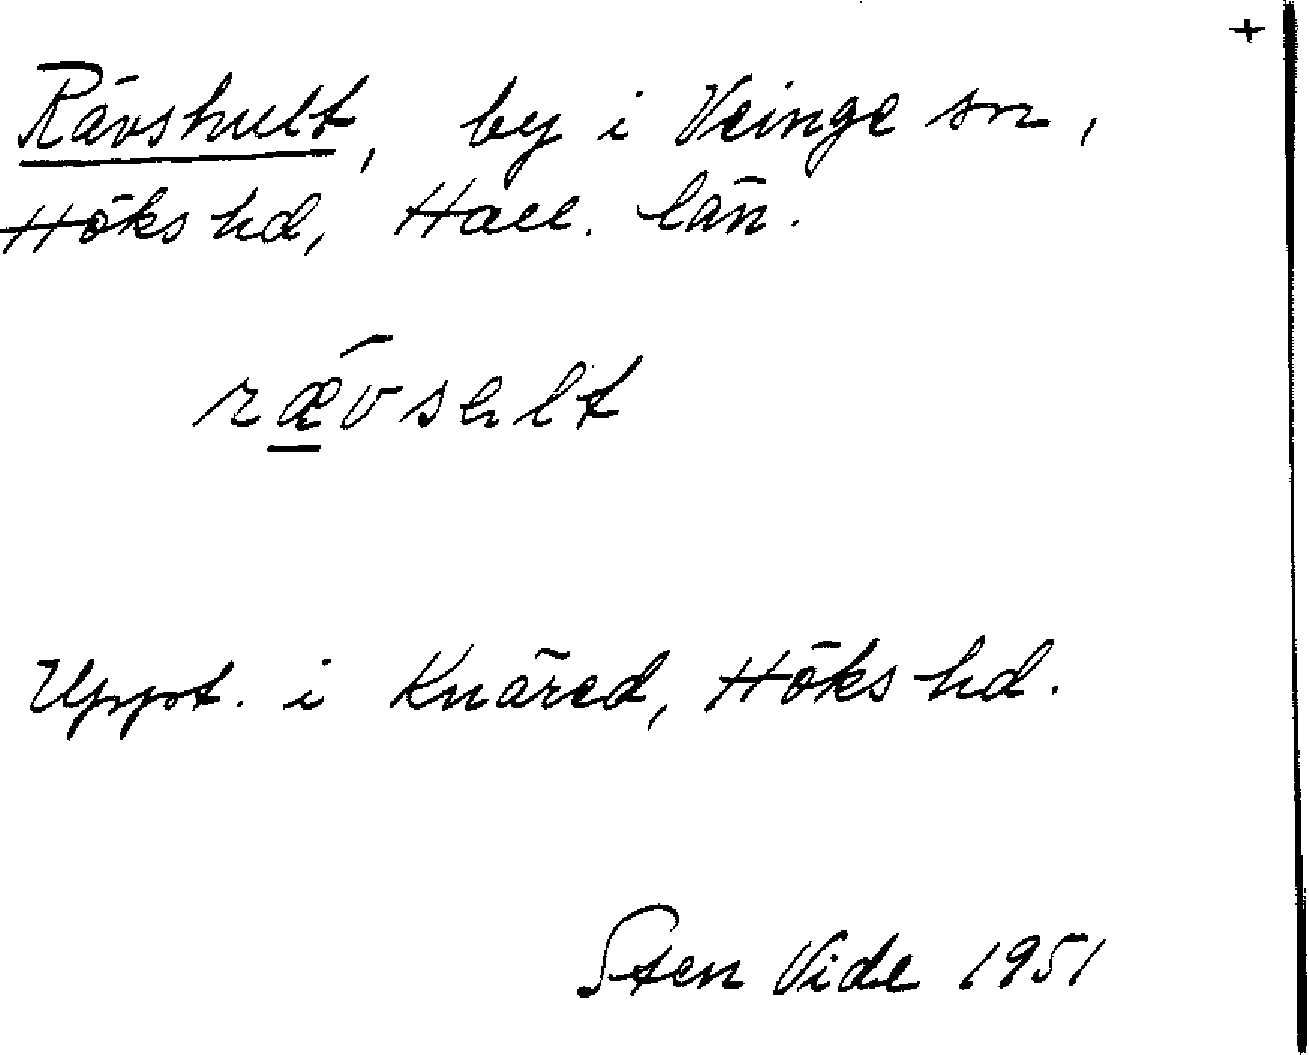 +
Rävshult, by i Veinge sn,
Höks hd, Hall. län.
rævsult
Uppt. i Knäred, Höks hd.
Sten Vide 1951